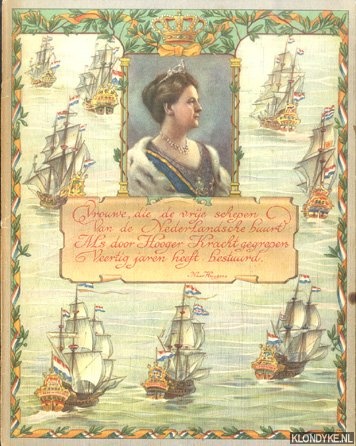 Vrouwe, die de vrije schepen
Van de Nederlandsche buurt
Als door Hooger Kracht gegrepen
Veertig jaren heeft bestuurd.
KLONDYKE.NL